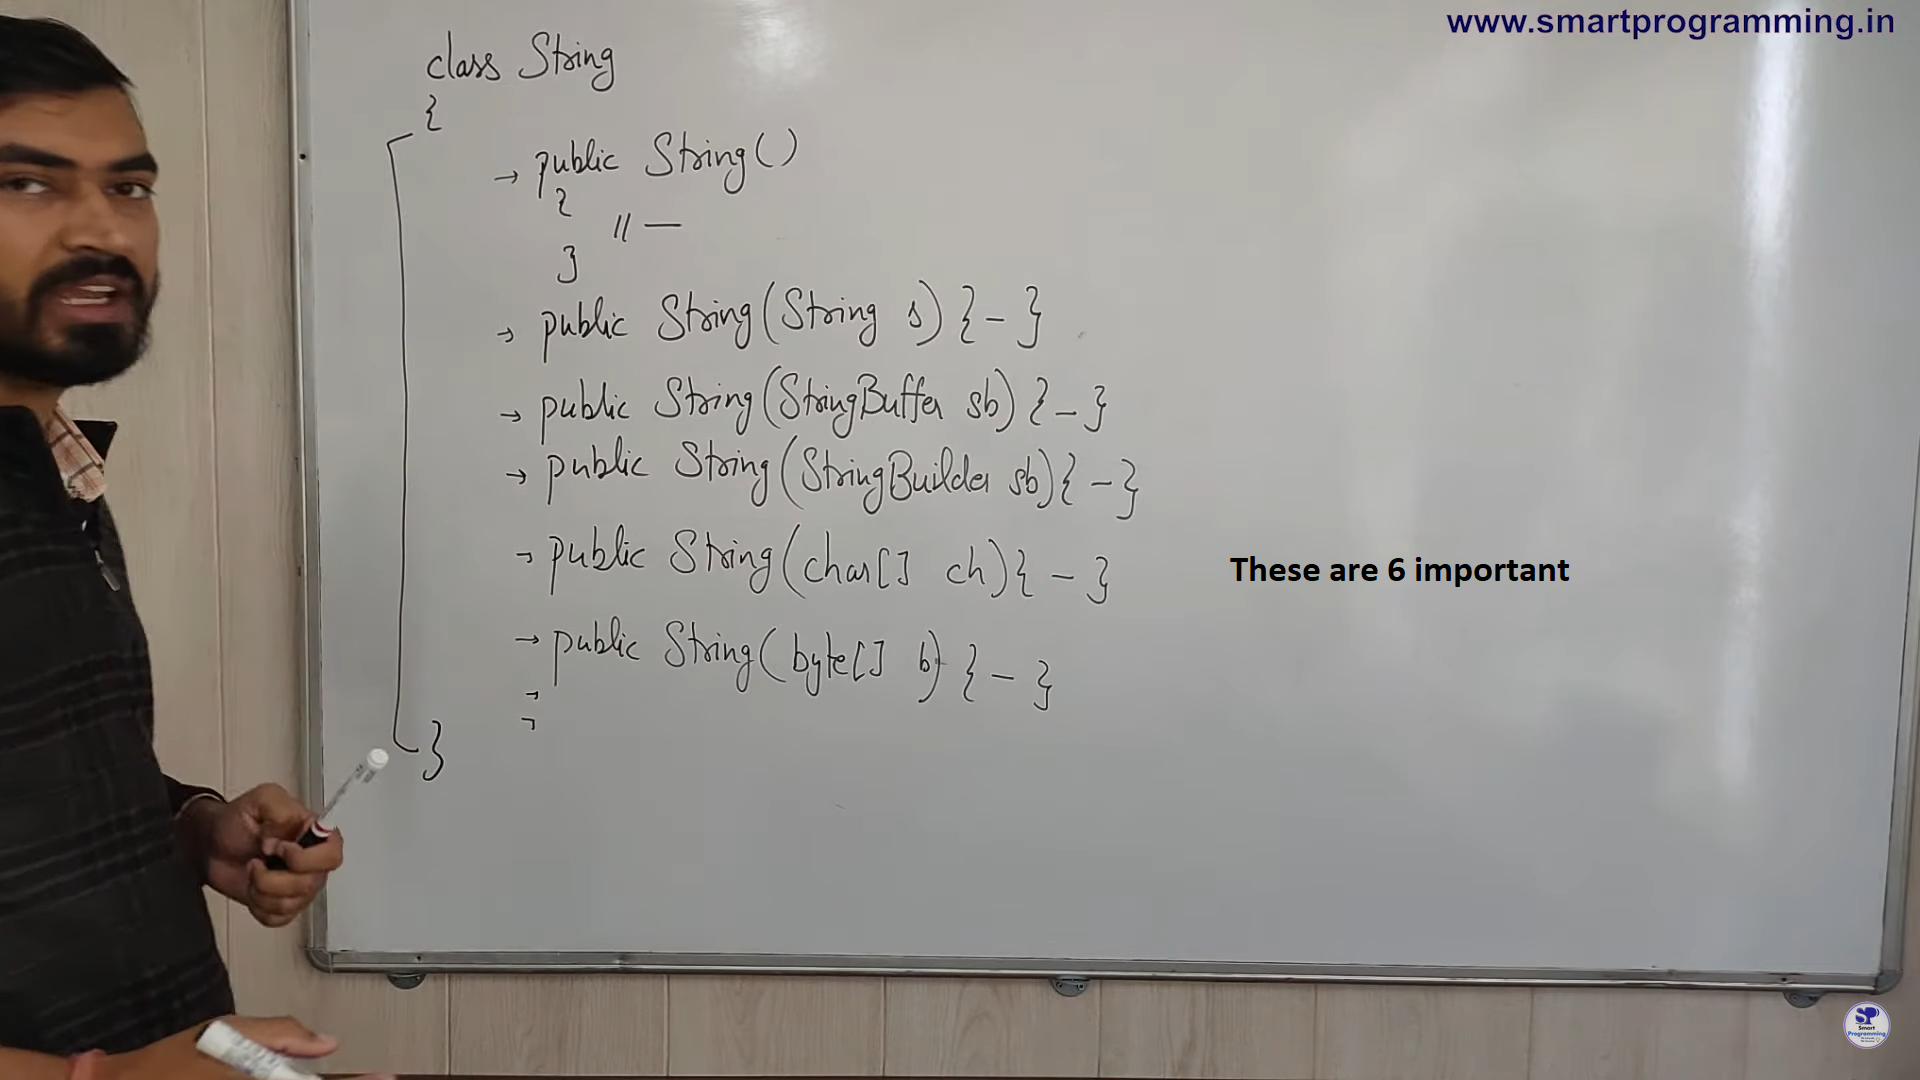 www.smartprogramming.in
class String
{
→ public String()
{
// —
}
→ public String(String s) { - }
→ public String(StringBuffer sb) { - }
→ public String(StringBuilder sb) { - }
→ public String(char[] ch) { - }
→ public String(byte[] b) { - }
}
These are 6 important
SP
Smart
Programming